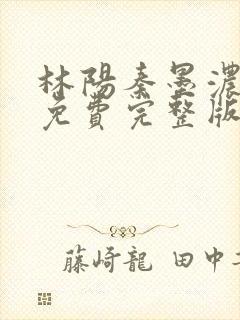 林陽秦墨濃
免費完整版
藤崎龍 田中